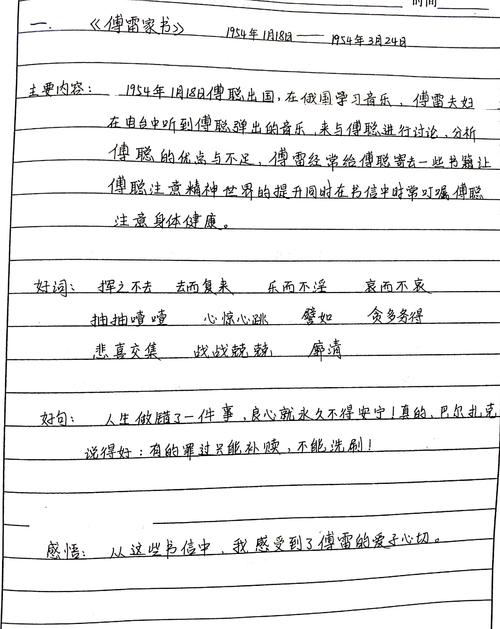 时间
一. 《傅雷家书》 1954年1月18日——1954年3月24日
主要内容： 1954年1月18日傅聪出国,在俄国学习音乐，傅雷夫妇
在电台中听到傅聪弹出的音乐,来与傅聪进行讨论,分析
傅聪的优点与不足，傅雷经常给傅聪寄去一些书籍让
傅聪注意精神世界的提升同时在书信中时常叮嘱傅聪
注意身体健康。
好词： 挥之不去 去而复来 乐而不淫 哀而不哀
抽抽噎噎 心惊心跳 譬如 贪多务得
悲喜交集 战战兢兢 廓清
好句： 人生做错了一件事,良心就永久不得安宁!真的,巴尔扎克
说得好：有的罪过只能补赎,不能洗刷!
感悟： 从这些书信中，我感受到了傅雷的爱子心切。